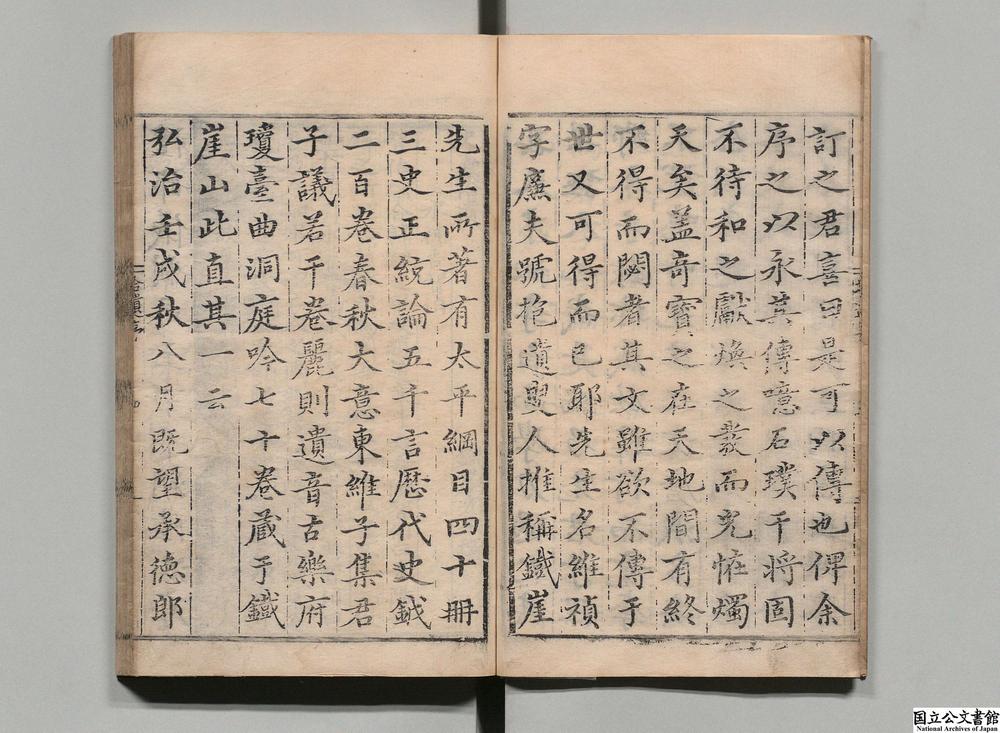 訂之君喜曰是可以傳也俾余
序之以永其傳噫石璞干將固
不待和之獻煥之發而光恠燭
天矣盖奇寳之在天地間有終
不得而閟者其文雖欲不傳于
世又可得而已耶先生名維禎
字廉夫號抱遺叟人推稱鐵崖
先生所著有太平綱目四十冊
三史正統論五千言歷代史鉞
二百卷春秋大意東維子集君
子議若干卷麗則遺音古樂府
瓊臺曲洞庭吟七十卷蔵于鐵
崖山此直其一云
弘治壬戌秋八月既望承德郎
国立公文書館
National Archives of Japan